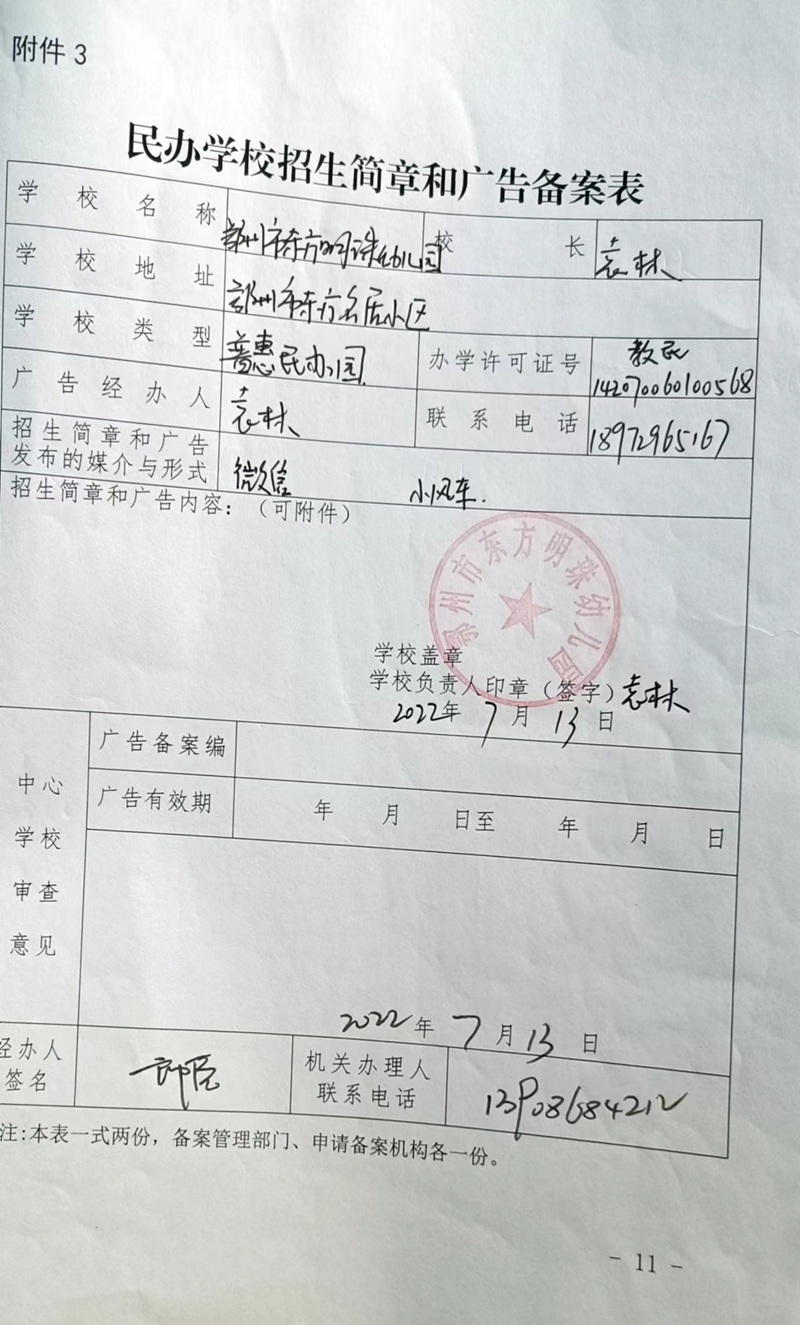 附件 3
民办学校招生简章和广告备案表
学校名称 鄂州市东方明珠幼儿园 校长 袁林
学校地址 鄂州市东方名居小区
学校类型 普惠民办园 办学许可证号 教民142070060100568
广告经办人 袁林 联系电话 18972965167
招生简章和广告
发布的媒介与形式 微信 小风车.
招生简章和广告内容：（可附件）
鄂州市东方明珠幼儿园
学校盖章
学校负责人印章（签字）袁林
2022年7月13日
中心学校审查意见
广告备案编
广告有效期 年 月 日至 年 月 日
2022年7月13日
经办人签名
机关办理人联系电话 13908684212
注:本表一式两份，备案管理部门、申请备案机构各一份。
- 11 -